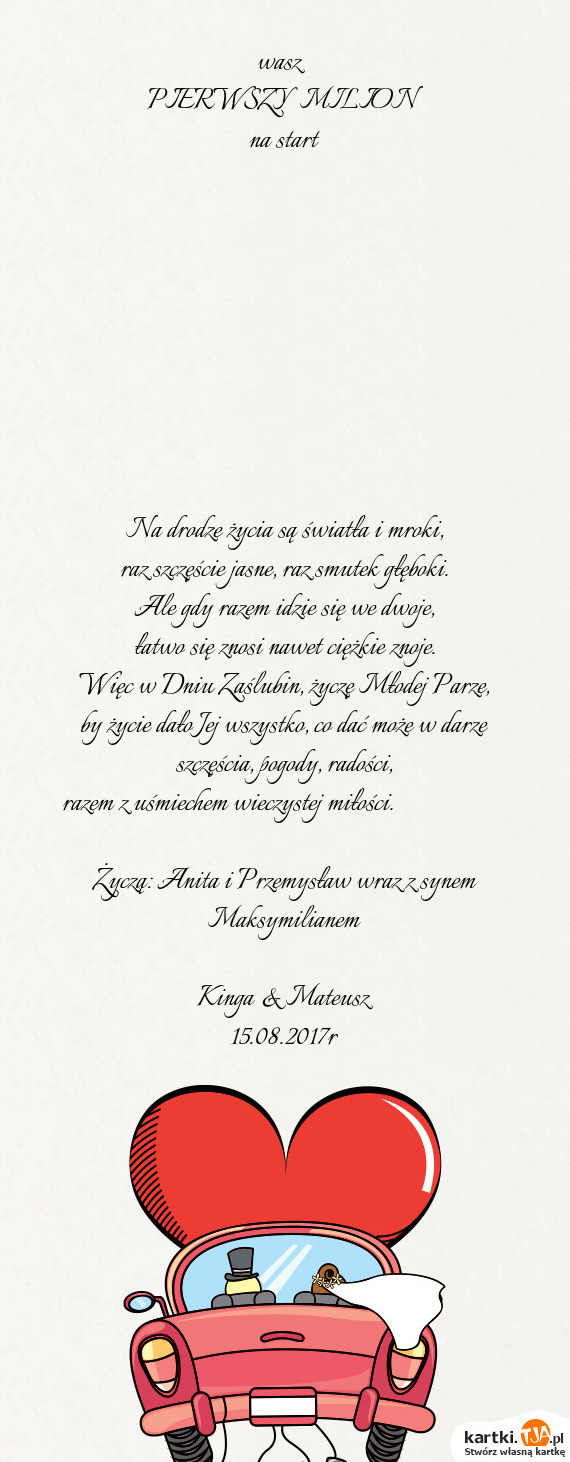 wasz
PIERWSZY MILION
na start
Na drodze życia są światła i mroki,
raz szczęście jasne, raz smutek głęboki.
Ale gdy razem idzie się we dwoje,
łatwo się znosi nawet ciężkie znoje.
Więc w Dniu Zaślubin, życzę Młodej Parze,
by życie dało Jej wszystko, co dać może w darze
szczęścia, pogody, radości,
razem z uśmiechem wieczystej miłości.
Życzą: Anita i Przemysław wraz z synem
Maksymilianem
Kinga & Mateusz
15.08.2017r
kartki.TJA.pl
Stwórz własną kartkę